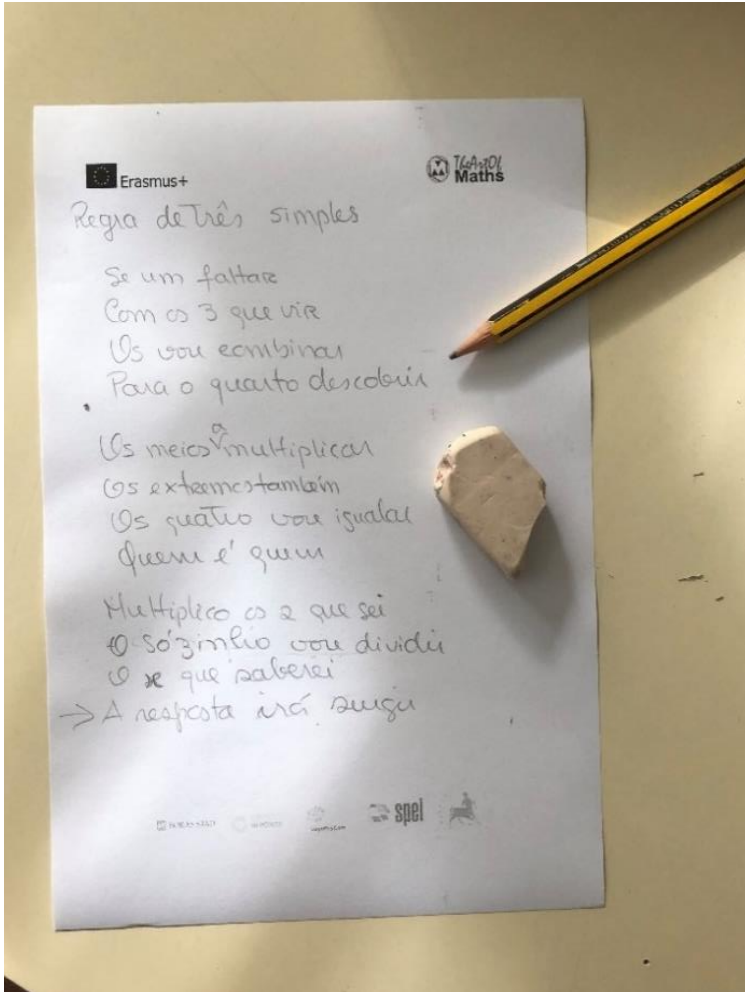 Erasmus+
TheArtOf
Maths
Regra de Três simples
Se um faltar
Com os 3 que vir
Os vou combinar
Para o quarto descobrir
Os meios a multiplicar
Os extremos também
Os quatro vou igualar
Quem é quem
Multiplico os 2 que sei
O sózinho vou dividir
O x que saberei
→ A resposta irá surgir
spel